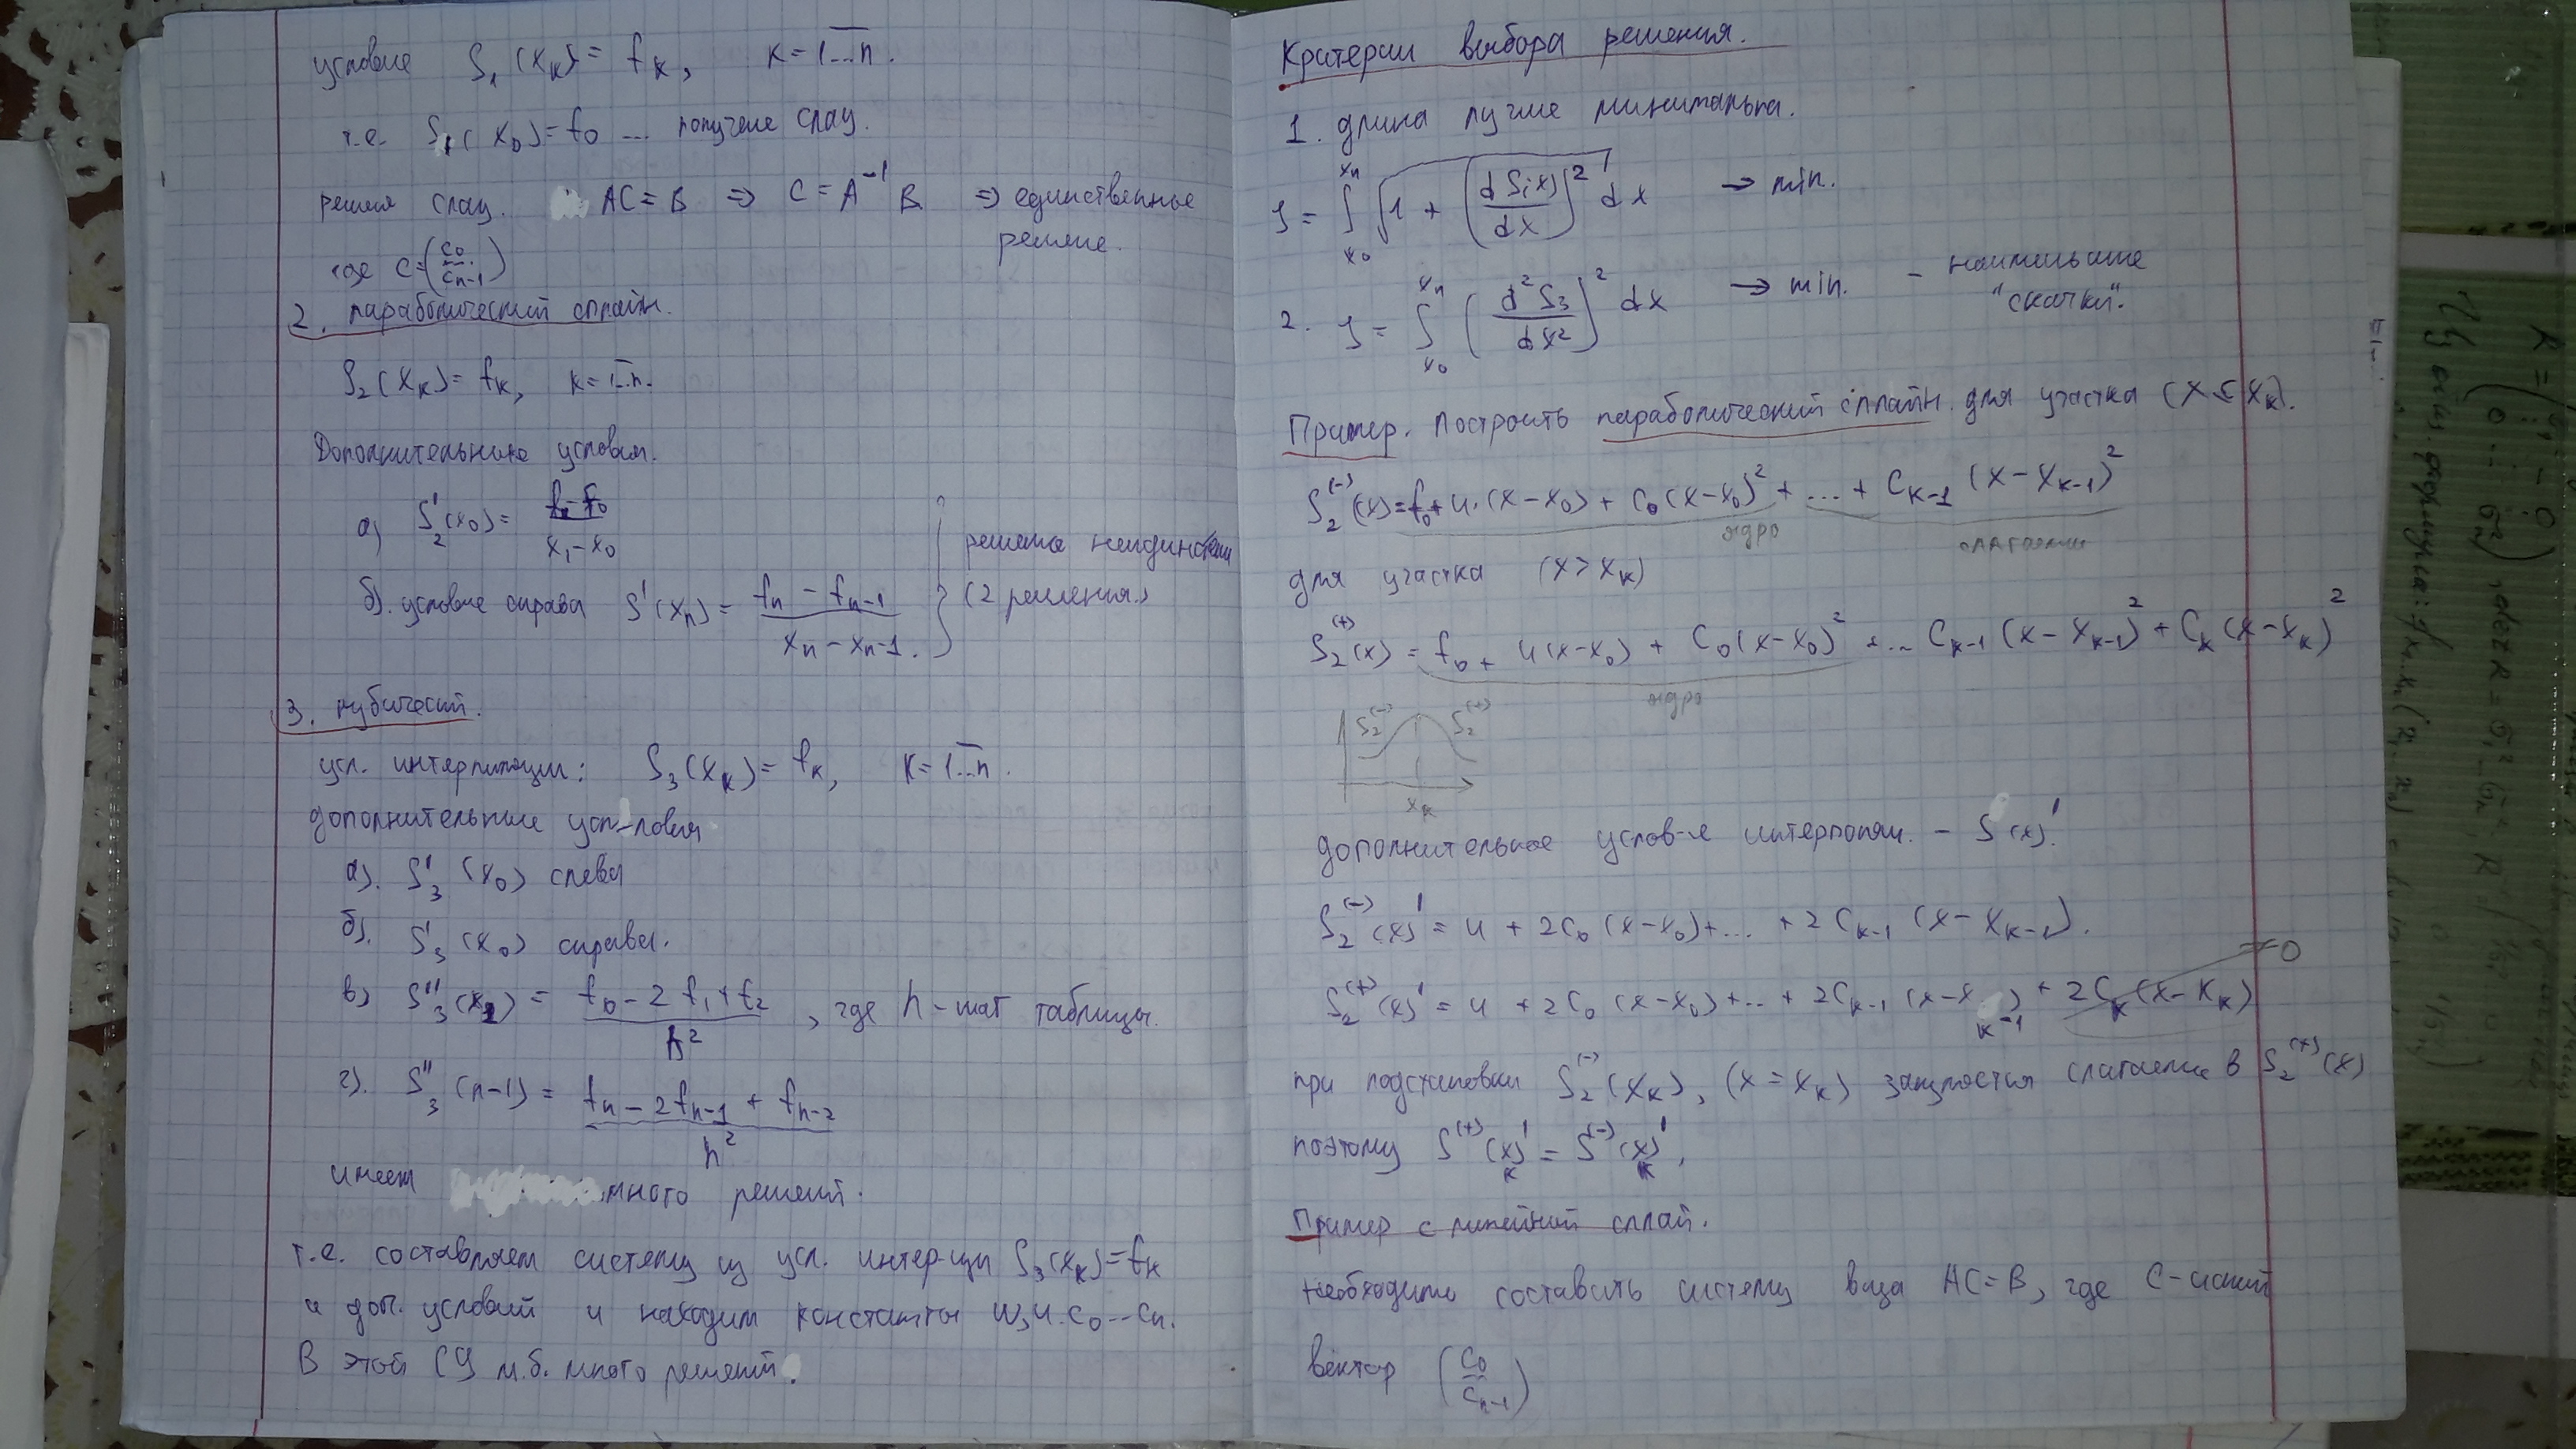 условие S₁(xₖ) = fₖ, k = 1...n.
т.е. S₁(x₀) = f₀ ... получие слау.
решеи слау. AC = B ⇒ C = A⁻¹B ⇒ единственное
решение.
где C = (c₀ ... cₙ₋₁)
2. параболический сплайн.
S₂(xₖ) = fₖ, k = 1...n.
Дополнительные условия.
а) S₂'(x₀) = (f₁ - f₀)/(x₁ - x₀)
решение
б). условие справа S'(xₙ) = (fₙ - fₙ₋₁)/(xₙ - xₙ₋₁.) } (2 решения)
3. кубический.
усл. интерполяции: S₃(xₖ) = fₖ, k = 1...n.
дополнительные усл-ловия.
а). S₃'(x₀) слева
б). S₃'(x₀) справа.
в) S₃''(x₁) = (f₀ - 2f₁ + f₂)/h², где h - шаг таблицы.
г). S₃''(n-1) = (fₙ - 2fₙ₋₁ + fₙ₋₂)/h²
имеем много решений.
т.е. составляем систему из усл. интер-ции S₃(xₖ) = fₖ
и доп. условий и находим константы c₀...cₙ.
В этой СУ м.б. много решений.
Критерии выбора решения.
1. длина лучше минимальна.
J = ∫ₓ₀^xₙ √(1 + (dS(x)/dx)²) dx → min.
2. J = ∫ₓ₀^xₙ (d²S₃/dx²)² dx → min. - наименьшие
"скачки".
Пример. построить параболический сплайн для участка (x ≤ xₖ).
S₂⁽⁻⁾(x) = f₀ + u.(x - x₀) + c₀(x - x₀)² + ... + cₖ₋₁(x - xₖ₋₁)²
ядро
для участка (x > xₖ)
S₂⁽⁺⁾(x) = f₀ + u(x - x₀) + c₀(x - x₀)² + ... cₖ₋₁(x - xₖ₋₁)² + cₖ(x - xₖ)²
ядро
S₂⁽⁻⁾ S₂⁽⁺⁾
xₖ
дополнительное услов-е интерполяц. - S(x)'.
S₂⁽⁻⁾(x)' = u + 2c₀(x - x₀) + ... + 2cₖ₋₁(x - xₖ₋₁).
S₂⁽⁺⁾(x)' = u + 2c₀(x - x₀) + ... + 2cₖ₋₁(x - xₖ₋₁) + 2cₖ(x - xₖ) → 0
при подстановки S₂⁽⁻⁾(xₖ), (x = xₖ) слагаемы в S₂⁽⁺⁾(x)
поэтому S⁽⁺⁾(xₖ)' = S⁽⁻⁾(xₖ)',
Пример с линейный сплай.
необходимо составить систему вида AC = B, где C -
вектор (c₀ ... cₙ₋₁)